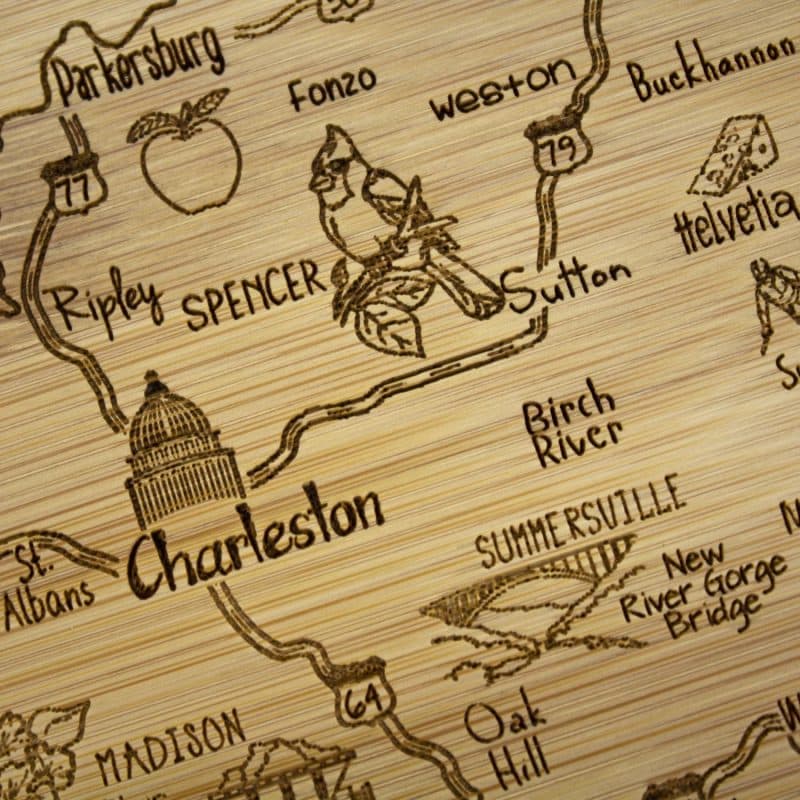 50
Parkersburg
Fonzo
Weston
Buckhannon
77
79
Helvetia
Ripley
SPENCER
Sutton
Birch
River
Charleston
SUMMERSVILLE
St.
Albans
New
River Gorge
Bridge
64
Oak
Hill
MADISON